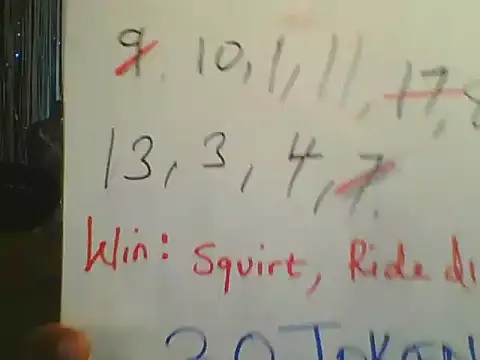 9, 10, 1, 11, 17, 8
13, 3, 4, 7
Win: Squirt, Ride di
20 TOKEN